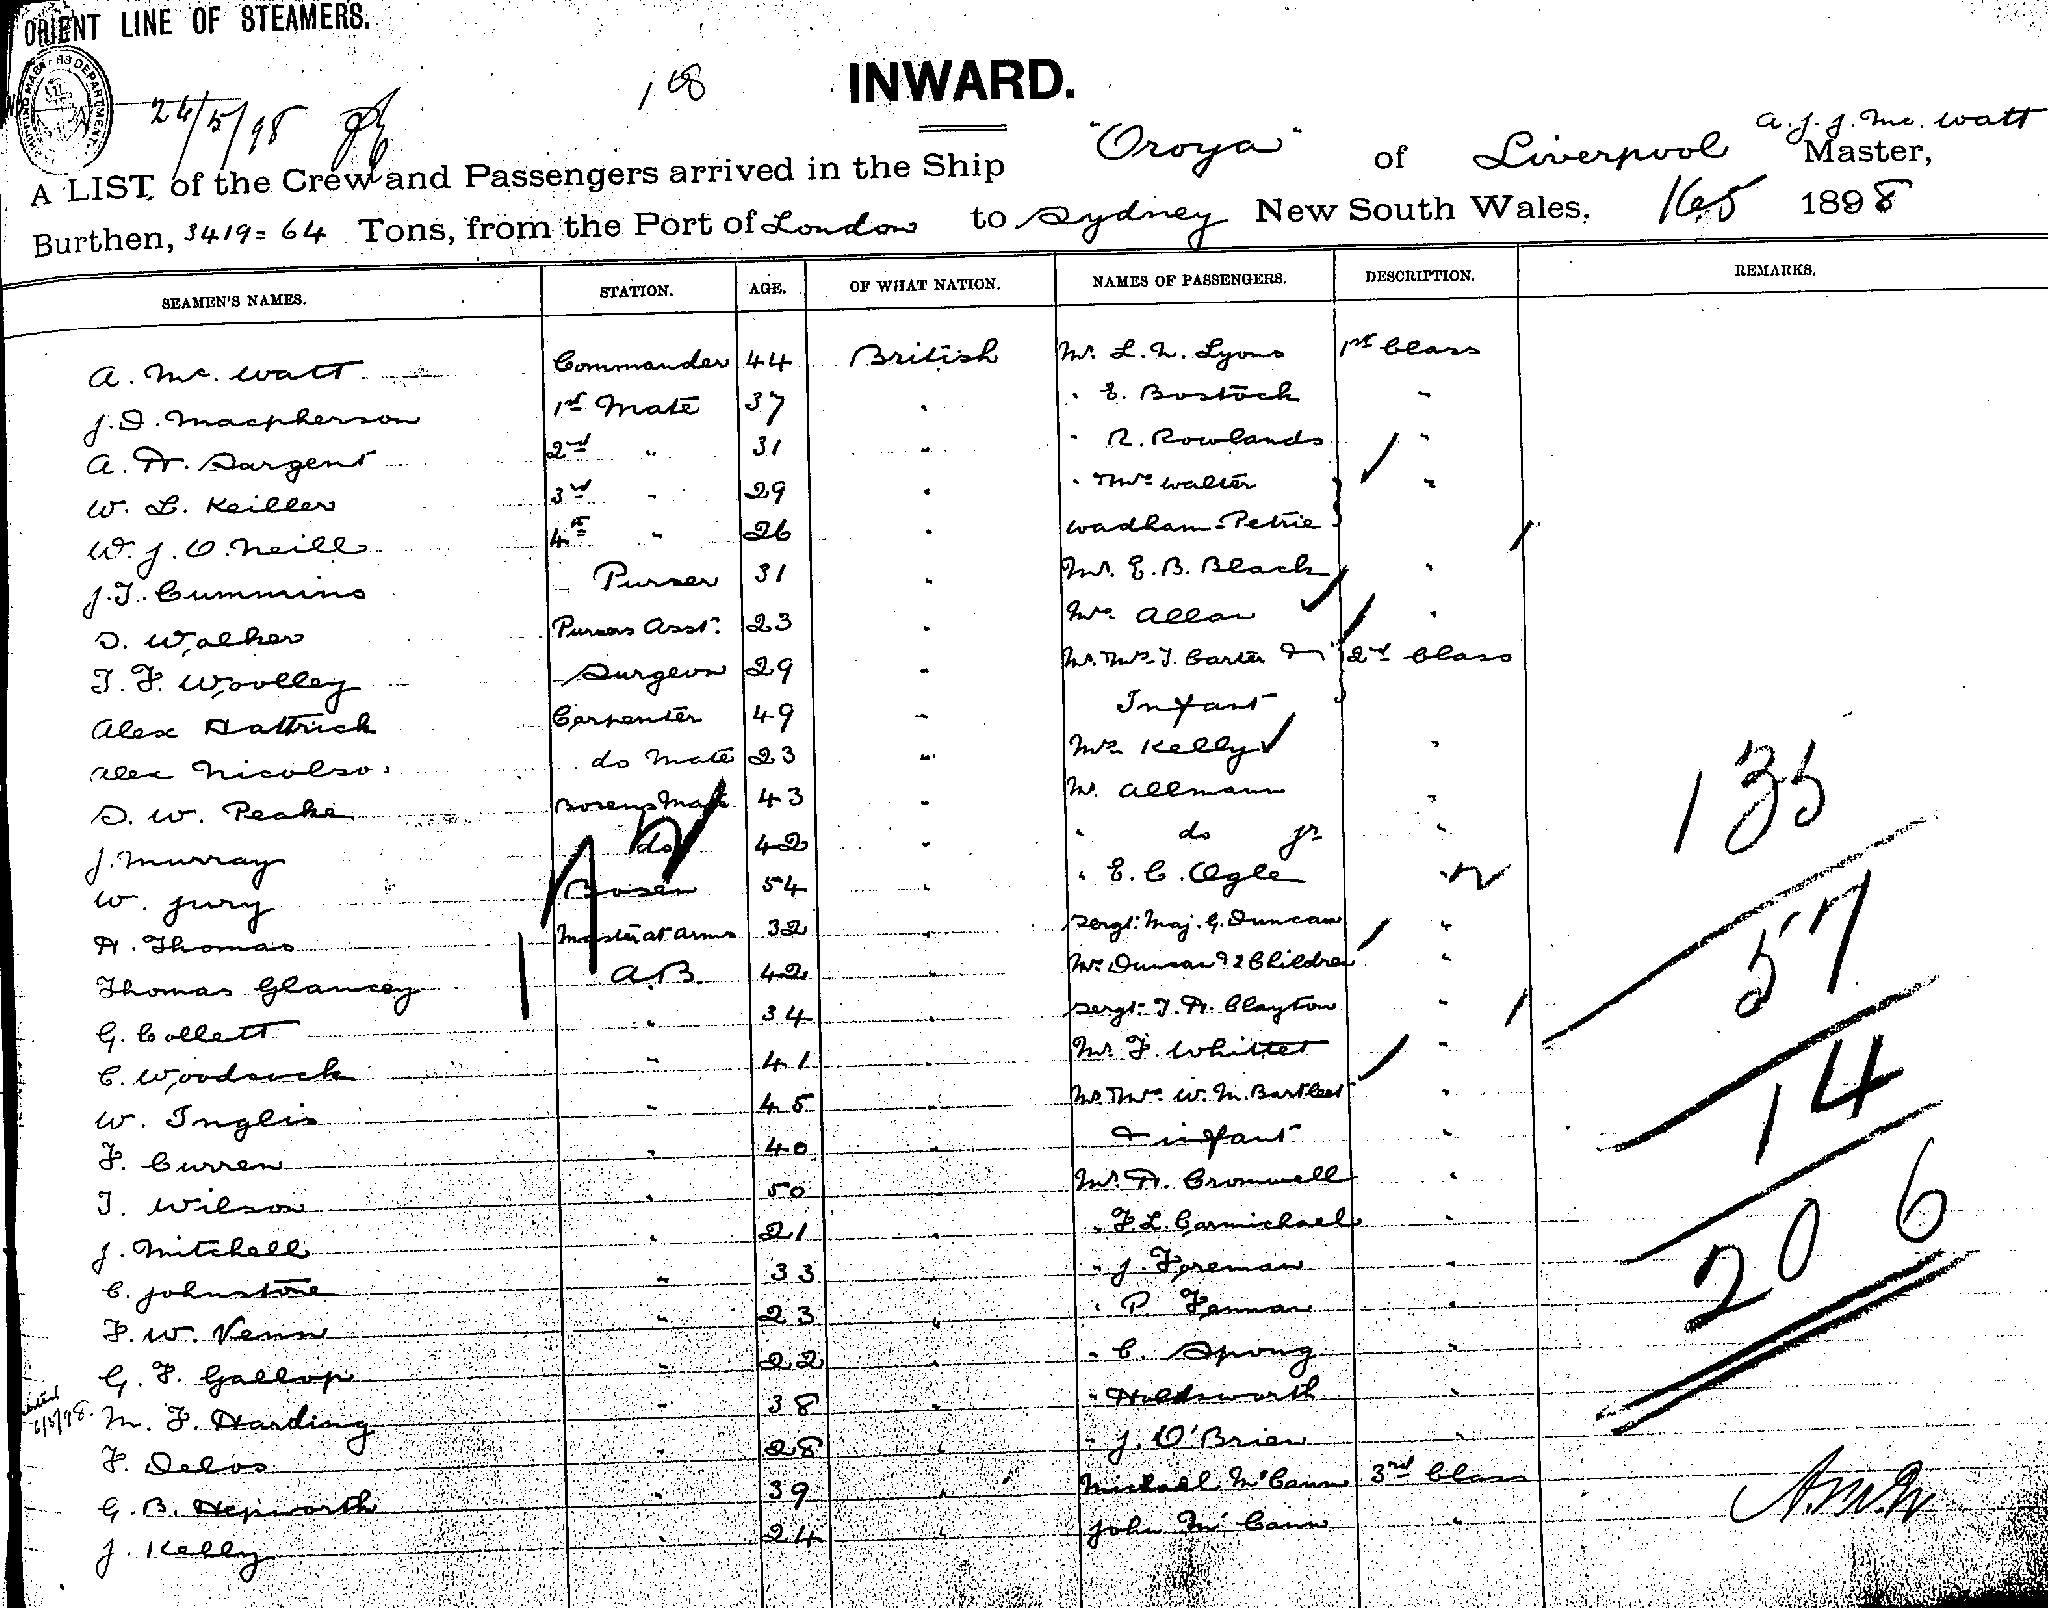 ORIENT LINE OF STEAMERS.
INWARD.
108
24/5/98
A. J. J. Mc. Watt
A LIST of the Crew and Passengers arrived in the Ship "Oroya" of Liverpool Master,
Burthen, 3419=64 Tons, from the Port of London to Sydney New South Wales, 1898
SEAMEN'S NAMES. STATION. AGE. OF WHAT NATION. NAMES OF PASSENGERS. DESCRIPTION. REMARKS.
A. Mc. Watt Commander 44 British Mr. L. N. Lyons 1st Class
J. D. Macpherson 1st Mate 37 " " E. Bostock "
A. H. Sargent 2nd " 31 " " R. Rowlands "
W. L. Keiller 3rd " 29 " " Mrs Walter "
W. J. O. Neill 4th " 26 " Wadham-Petrie
J. T. Cummins Purser 31 " Mr. E. B. Black "
D. Walker Pursers Asst. 23 " Mrs Allan "
T. F. Woolley Surgeon 29 Mr. Mrs. T. Carter & 2nd Class
Alex Hattrick Carpenter 49 " Infant
Alex Nicolso do Mate 23 " Mrs Kelly "
D. W. Peake Bosens Mate 43 " Mr. Allmann "
J. Murray do 42 " " do jr "
W. Jury Bosen 54 " " E. C. Ogle "
H. Thomas Master at Arms 32 " Sergt. Maj. G. Duncan "
Thomas Glancey A.B. 42 " Mrs Duncan & 2 Children "
G. Collett " 34 " Sergt. T. H. Clayton "
C. Woodsock " 41 " Mr F. Whittet "
W. Inglis " 45 " Mr. Mrs. W. M. Bartleet "
F. Curren " 40 " & infant "
T. Wilson " 50 " Mr. H. Cromwell "
J. Mitchell " 21 " " F. L. Carmichael "
C. Johnstone " 33 " " J. Foreman "
F. W. Venn " 23 " " P. Fennan "
G. F. Gallop " 22 " " C. Spong "
M. F. Harding " 38 " " Holdsworth "
F. Delos " 28 " " J. O'Brien "
G. B. Hepworth " 39 " Michael McCann 3rd Class
J. Kelly " 24 " John McCann "
135
57
14
206